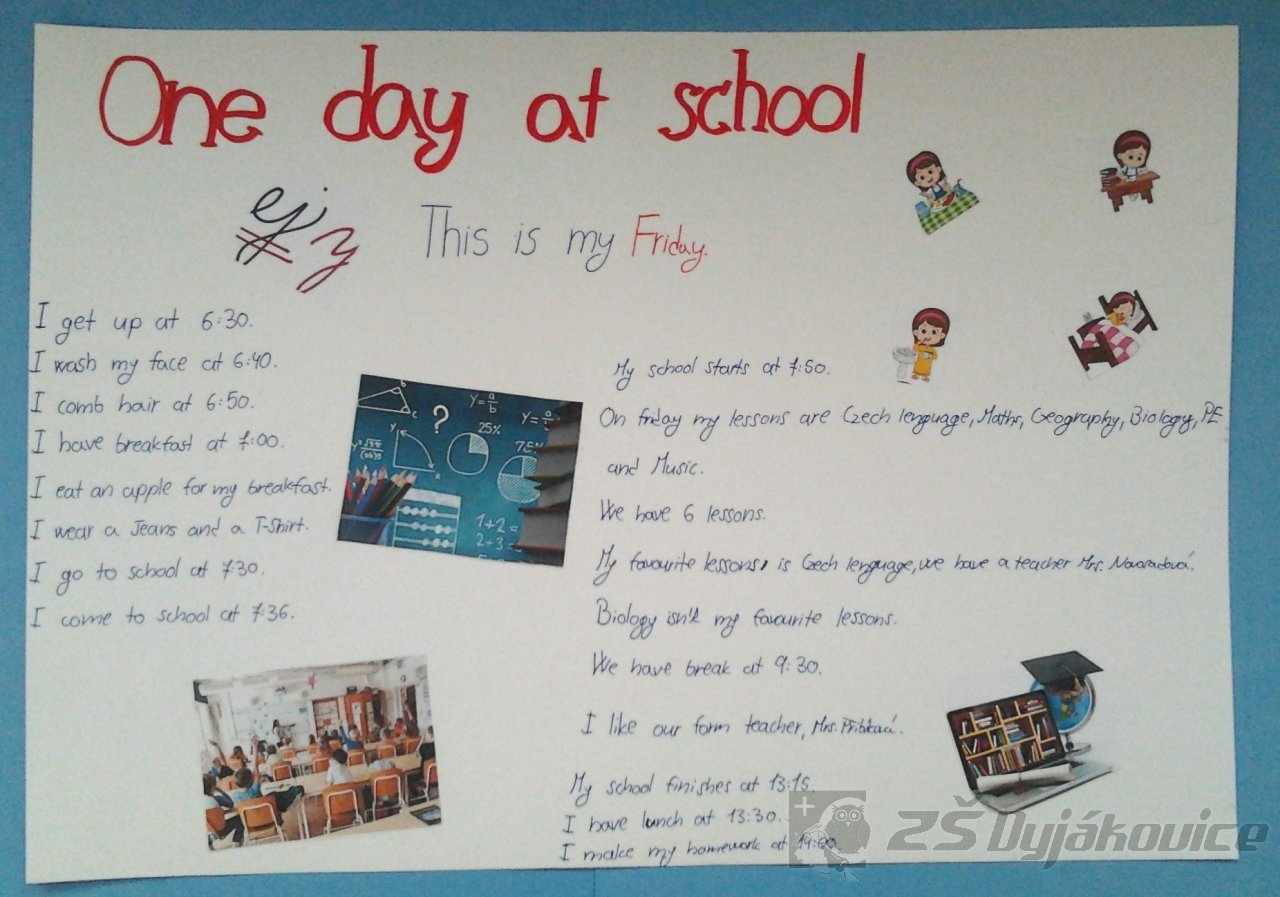 One day at school
This is my Friday.
I get up at 6:30.
I wash my face at 6:40.
I comb hair at 6:50.
I have breakfast at 7:00.
I eat an apple for my breakfast.
I wear a Jeans and a T-Shirt.
I go to school at 7:30.
I come to school at 7:36.
a
b
c
?
Y=a/b
Y=a/
25%
75%
y
x
1+2=
2+3=
My school starts at 7:50.
On friday my lessons are Czech lenguage, Maths, Geography, Biology, PE
and Music.
We have 6 lessons.
My favourite lessons, is Czech lenguage, we have a teacher Mrs.
Biology isn't my favourite lessons.
We have break at 9:30.
I like our form teacher, Mrs.
My school finishes at 13:15.
I have lunch at 13:30.
I make my homework at 14:00.
ZŠ Dyjákovice